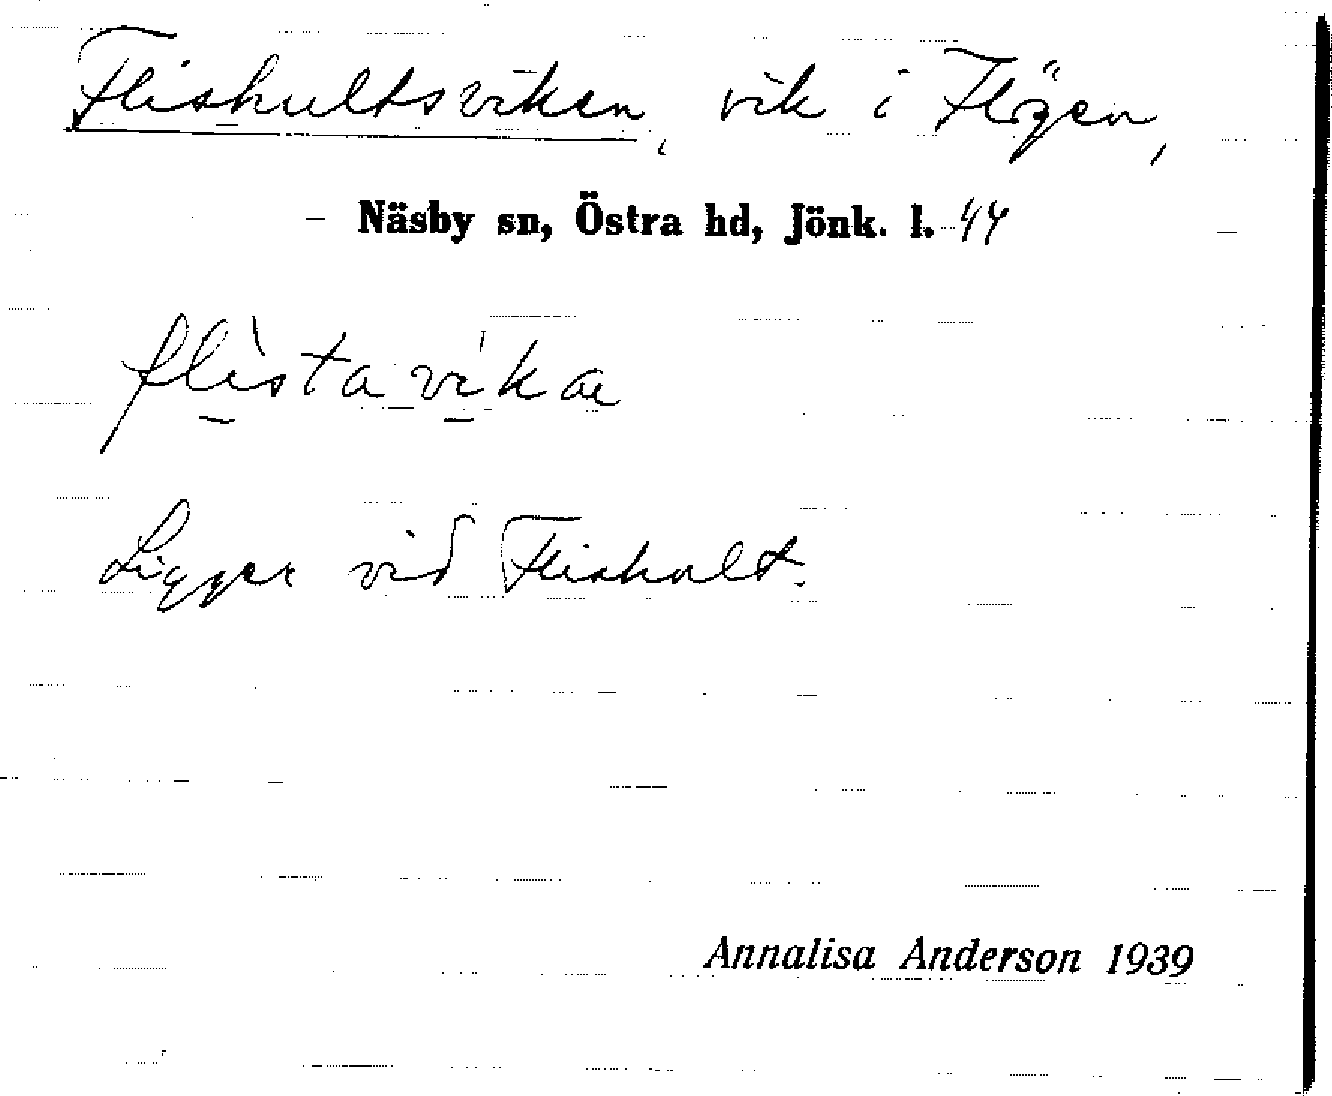 Flishultsviken, vik i Flögen,
Näsby sn, Östra hd, Jönk. l. 44
flìstavı́kæ
Ligger vid Flishult.
Annalisa Anderson 1939